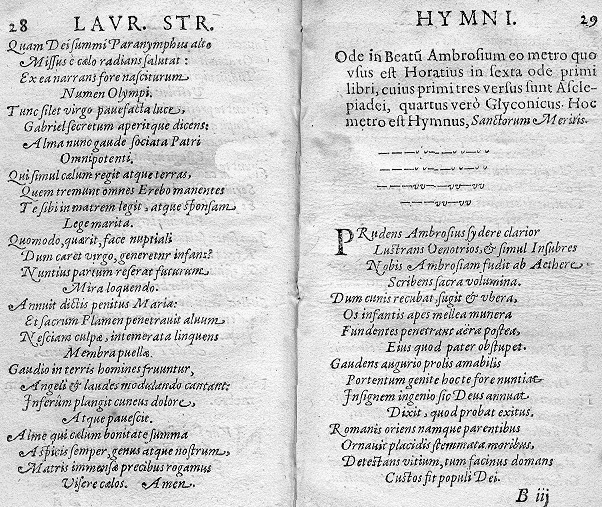 28 LAVR. STR.
Quam Dei summi Paranymphus alto
Missus è cælo radians salutat:
Ex ea narrans fore nasciturum
Numen Olympi.
Tunc silet virgo pauefacta luce,
Gabriel secretum aperitque dicens:
Alma nunc gaude sociata Patri
Omnipotenti.
Qui simul cælum regit atque terras,
Quem tremunt omnes Erebo manentes
Te sibi in matrem legit, atque sponsam
Lege marita.
Quomodo, quærit, face nuptiali
Dum caret virgo, generetur infans?
Nuntius partum reserat futurum
Mira loquendo.
Annuit dictis penitus Maria:
Et sacrum Flamen penetrauit aluum
Nesciam culpæ, intemerata linquens
Membra puellæ.
Gaudio in terris homines fruuntur,
Angeli & laudes modulando cantant:
Inferûm plangit cuneus dolore,
Atque pauescit.
Alme qui cælum bonitate summa
Aspicis semper, genus atque nostrum,
Matris immensæ precibus rogamus
Visere cælos. Amen.
HYMNI. 29
Ode in Beatũ Ambrosium eo metro quo
vsus est Horatius in sexta ode primi
libri, cuius primi tres versus sunt Ascle-
piadei, quartus verò Glyconicus. Hoc
metro est Hymnus, Sanctorum Meritis.
PRudens Ambrosius sydere clarior
Lustrans Oenotrios, & simul Insubres
Nobis Ambrosiam fudit ab Aethere
Scribens sacra volumina.
Dum cunis recubat sugit & vbera,
Os infantis apes mellea munera
Fundentes penetrant aëra postea,
Eius quod pater obstupet.
Gaudens augurio prolis amabilis
Portentum genite hoc te fore nuntiat
Insignem ingenio sic Deus annuat
Dixit, quod probat exitus.
Romanis oriens namque parentibus
Ornauit placidis stemmata moribus,
Detestans vitium, tum facinus domans
Custos fit populi Dei.
B iij